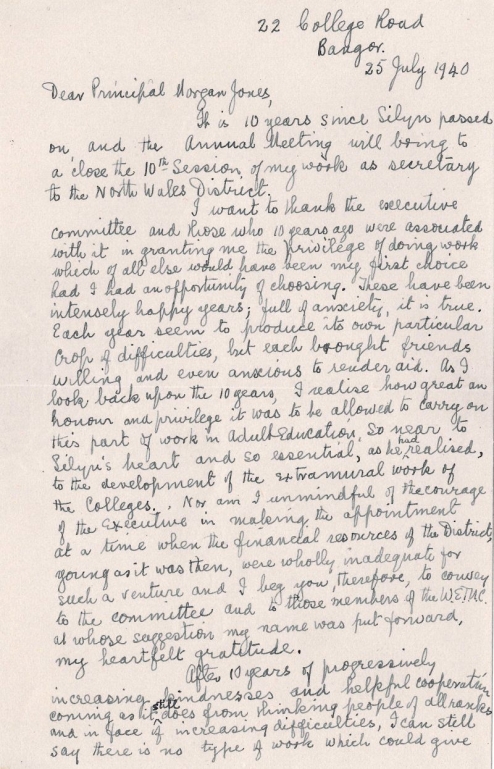 22 College Road
Bangor.
25 July 1940
Dear Principal Morgan Jones,
It is 10 years since Silyn passed
on and the Annual Meeting will bring to
a close the 10th Session of my work as secretary
to the North Wales District.
I want to thank the executive
committee and those who 10 years ago were associated
with it in granting me the privilege of doing work
which of all else would have been my first choice
had I had an opportunity of choosing. These have been
intensely happy years; full of anxiety, it is true.
Each year seem to produce its own particular
crop of difficulties, but each brought friends
willing and even anxious to render aid. As I
look back upon the 10 years, I realise how great an
honour and privilege it was to be allowed to carry on
this part of work in Adult Education, so near to
Silyn's heart and so essential, as he had realised,
to the development of the extramural work of
the Colleges. Nor am I unmindful of the courage
of the Executive in making the appointment
at a time when the financial resources of the District,
young as it was then, were wholly inadequate for
such a venture and I beg you, therefore, to convey
to the committee and to those members of the W.E.T.A.C.
at whose suggestion my name was put forward,
my heartfelt gratitude.
After 10 years of progressively
increasing kindnesses and helpful cooperation
coming as it still does from thinking people of all ranks
and in face of increasing difficulties, I can still
say there is no type of work which could give